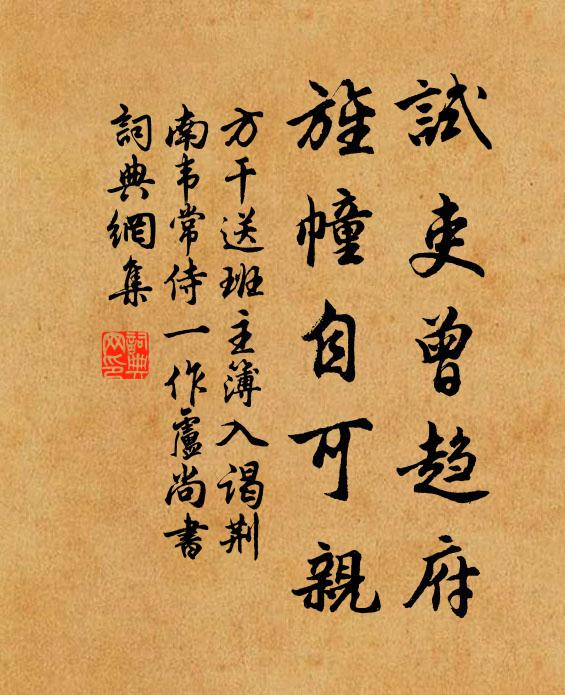 試吏曾趨府
旌幢自可親
方干送班主簿入谒荆
南韦常侍一作盧尚書
詞典網集
詞典网印